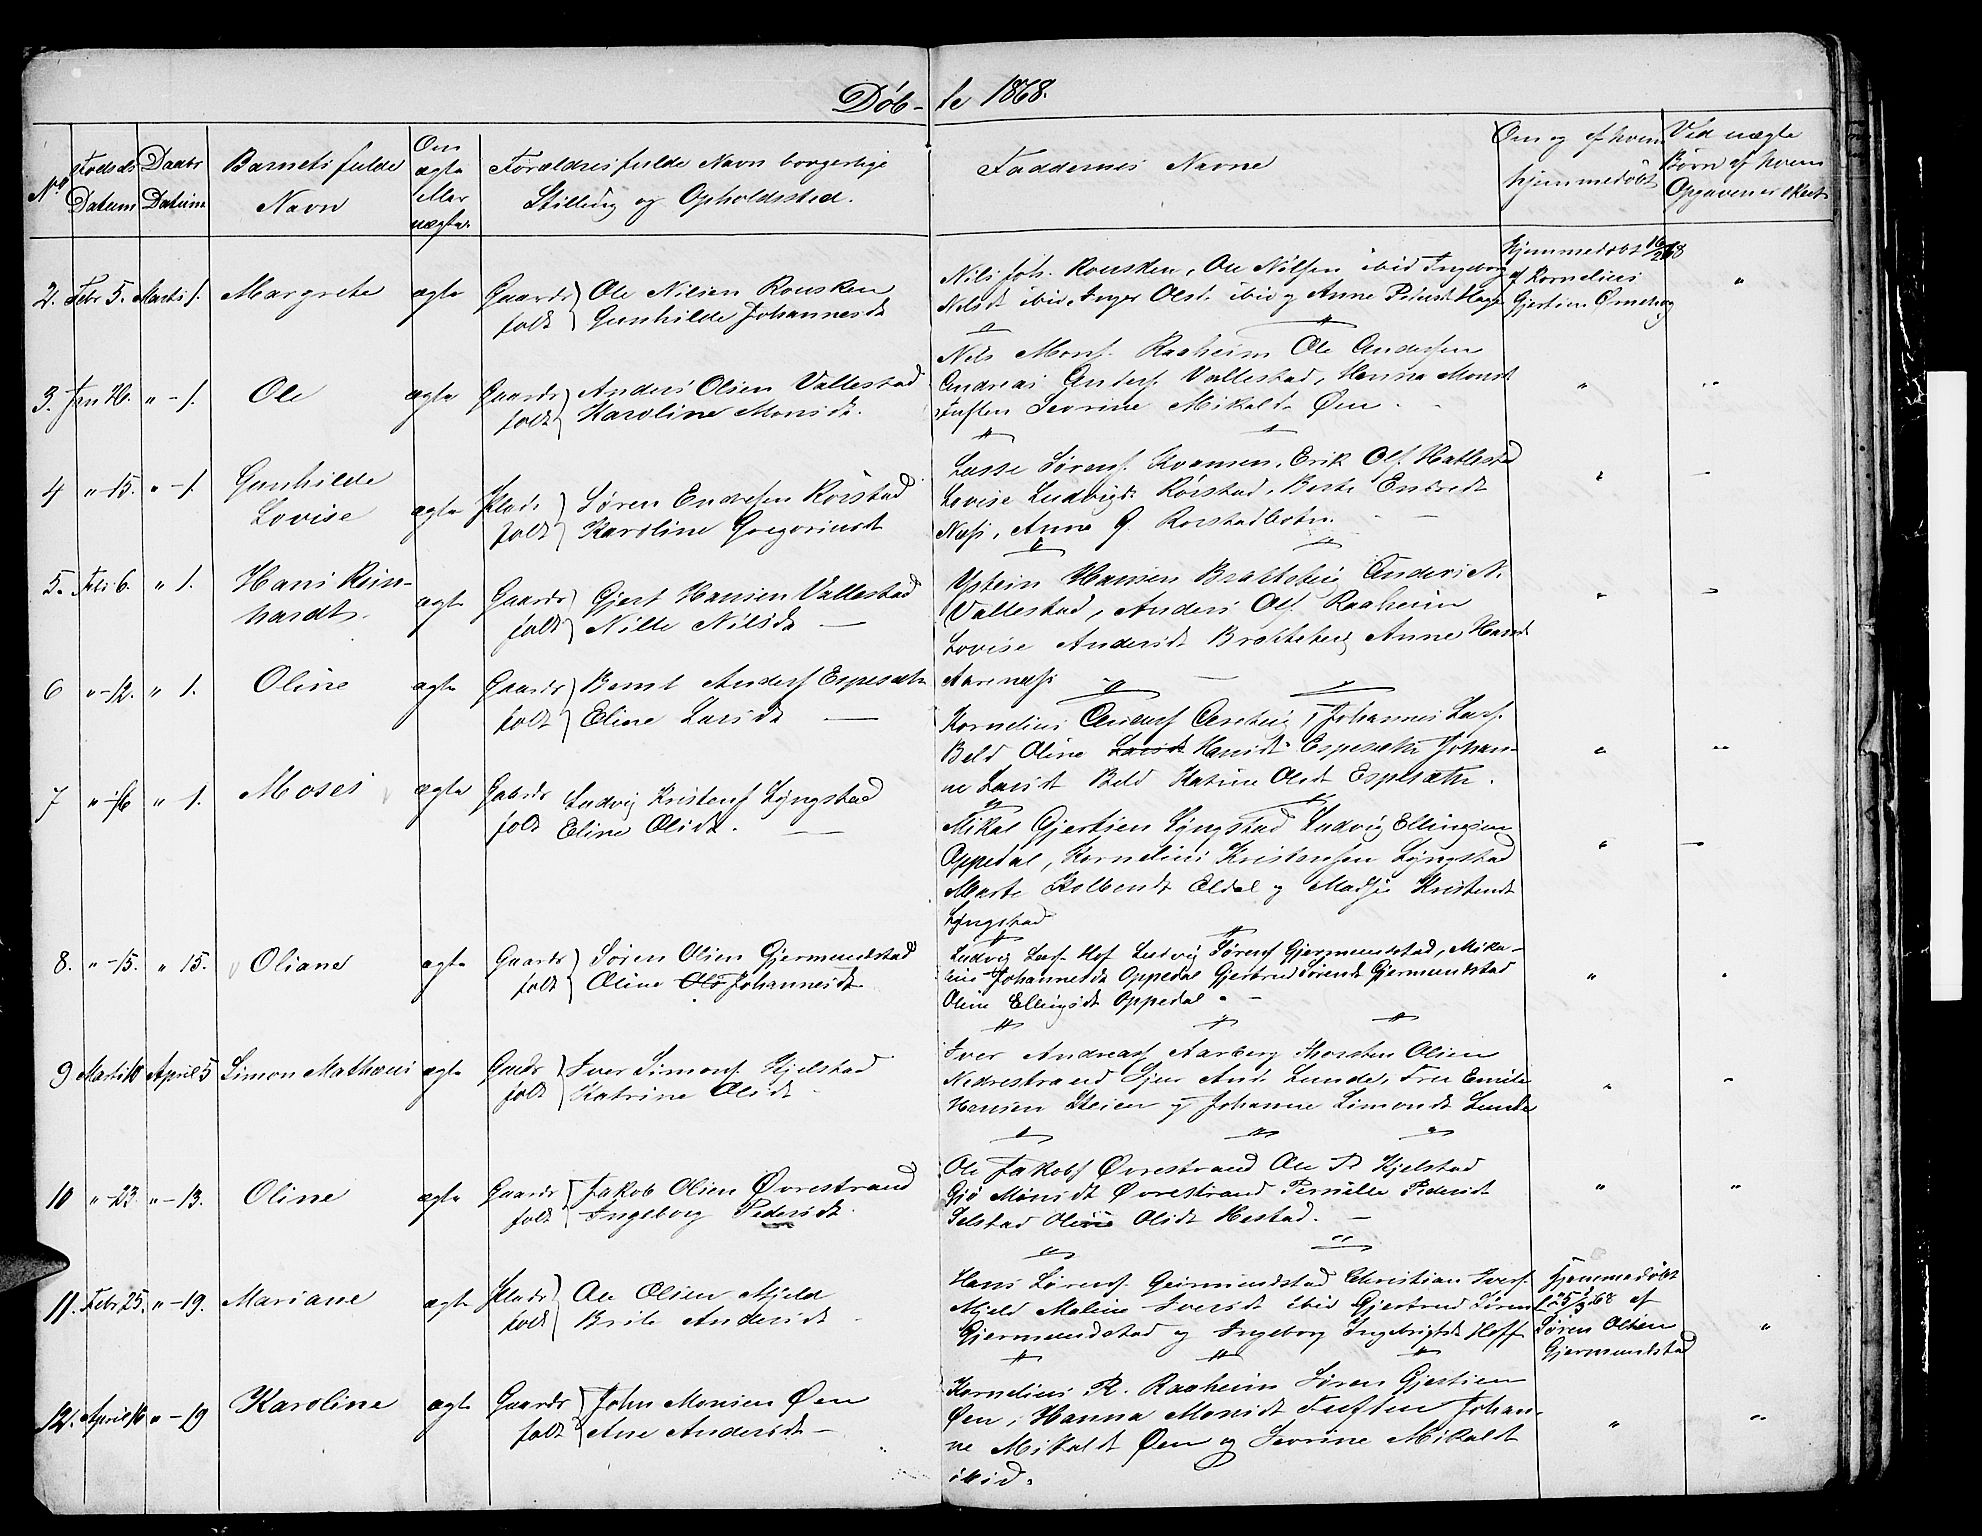 Døb- te 1868.
No Fødsels Datum Daabs Datum Barnets fulde Navn Om ægte eller uægte. Forældres fulde Navn borgerlige Stilling og Opholdssted. Faddernes Navne Om og af hvem hjemmedøbt Ved uægte Børn af hvem Opgaven er skeet.
2. Febr 5. Marts 1. Margrete ægte Gaards folk Ole Nilsen Rousken
Gunhilde Johannesdt
Nils Joh. Rousken, Ole Nilsen ibid Ingeborg
Nilsdt ibid, Inger Olsdt. ibid og Anne Pedersdt
Hjemmedøbt 16/2 68
af Kornelius
Gjertsen "
3. Jan 26. " - 1. Ole ægte Gaards folk Anders Olsen Vallestad
Karoline Monsdt.
Nils Mons. Raaheim Ole Andersen
Andreas Anders. Vallestad, Hanna Monsdt
Tuften Sevrine Mikalsdt. Øen - " "
4 " - 15. " - 1. Gunhilde
Lovise ægte Plads folk Søren Endresen Rørstad
Karoline Gregoriusdt
Lasse Sørens. Kvamen, Erik Ols. Hatlestad
Lovise Ludvigsdt Rørstad, Berte Endredt
Næss, Anne G. " -
5. Feb. 6. " 1. Hans Rein-
hardt. ægte Gaards folk Gjert Hansen Vallestad
Nille Nilsdt —
Ystein Hansen Brattebø Anders N.
Vallestad, Anders Ols. Raaheim
Lovise Andersdt Brattebø Anne Hansdt
Aarenæss " -
6 " - 12. " 1. Oline ægte Gaards folk Bernt Anders. Espesæter
Eline Larsdt —
Kornelius Anders. Johannes Lars.
Beld Oline Larsdt Hansdt Espesæter Johan-
ne Larsdt Beld Katrine Olsdt Espesæter. " "
7 " - 16 " - 1. Moses ægte Gaards folk Ludvig Kristens. Lyngstad
Eline Olsdt. —
Mikal Gjertsen Lyngstad Ludvig Ellingsen
Oppedal, Kornelius Kristensen Lyngstad
Marte Kolbensdt Eldal og Madsi Kristensdt
Lyngstad " -
8. " - 15. " 15. Oliane ægte Gaards folk Søren Olsen Gjermundstad
Oline Ols Johannesdt
Ludvig Lars. Hof Ludvig Sørens. Gjermundstad, Mika-
line Johannesdt Oppedal Gjertrud Sørensdt Gjermundstad
Oline Ellingsdt Oppedal. - " "
9 Marts 10 April 5 Simon Mathæus ægte Gaards folk Iver Simons. Hjelstad
Katrine Olsdt
Iver Andreas. Aarberg Thorsten Olsen
Nedrestrand Sjur And. Lunde, Fru Emilie
Hansen Steien og Johanne Simonsdt Lunde " "
10 " - 23. " - 13. Oline ægte Gaards folk Jakob Olsen Øvrestrand
Ingeborg Pedersdt.
Ole Jakobs. Øvrestrand Ole P Hjelstad
Gjø Monsdt Øvrestrand Pernille Pedersdt
Selstad Oline Olsdt Hestad. - " "
11. Febr 25. " - 19. Mariane ægte Plads folk Ole Olsen Mjeld
Brite Andersdt
Hans Sørens. Geirmundstad Christian Ivers.
Mjeld Maline Iversdt ibid Gjertrud Sørensdt
Gjermundstad og Ingeborg Ingebrigtsdt Hoff
Hjemmedøbt
5/3 68 af
Søren Olsen
Gjermundstad "
12. April 10 " - 19 Karoline ægte Gaards folk John Monsen Øen
Ane Andersdt -
Kornelius R. Raaheim Søren Gjertsen
Øen, Hanna Monsdt Tuften Johan-
ne Mikalsdt Øen og Sevrine Mikalsdt
ibid. " "